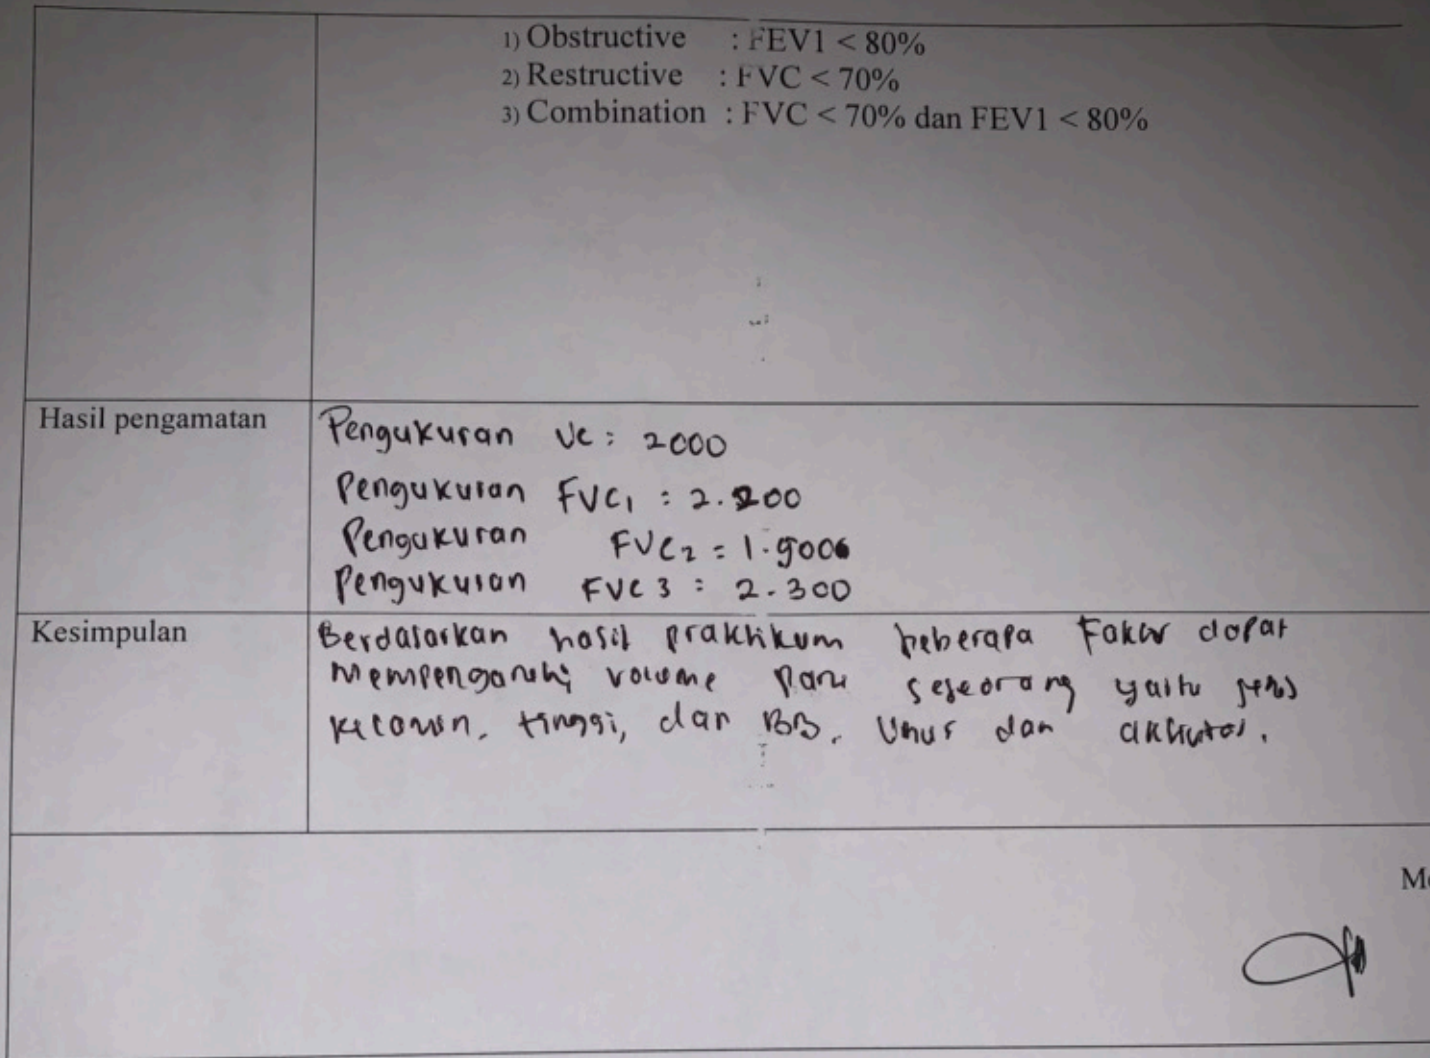 1) Obstructive : FEV1 < 80%
2) Restructive : FVC < 70%
3) Combination : FVC < 70% dan FEV1 < 80%
Hasil pengamatan
Pengukuran VC : 2000
Pengukuran FVC1 : 2.200
Pengukuran FVC2 =
Pengukuran FVC3 : 2.300
Kesimpulan
Berdasarkan hasil praktikum beberapa Faktor dapat
mempengaruhi volume paru seseorang yaitu jenis
kelamin, tinggi, dan BB, Umur dan aktivitas.